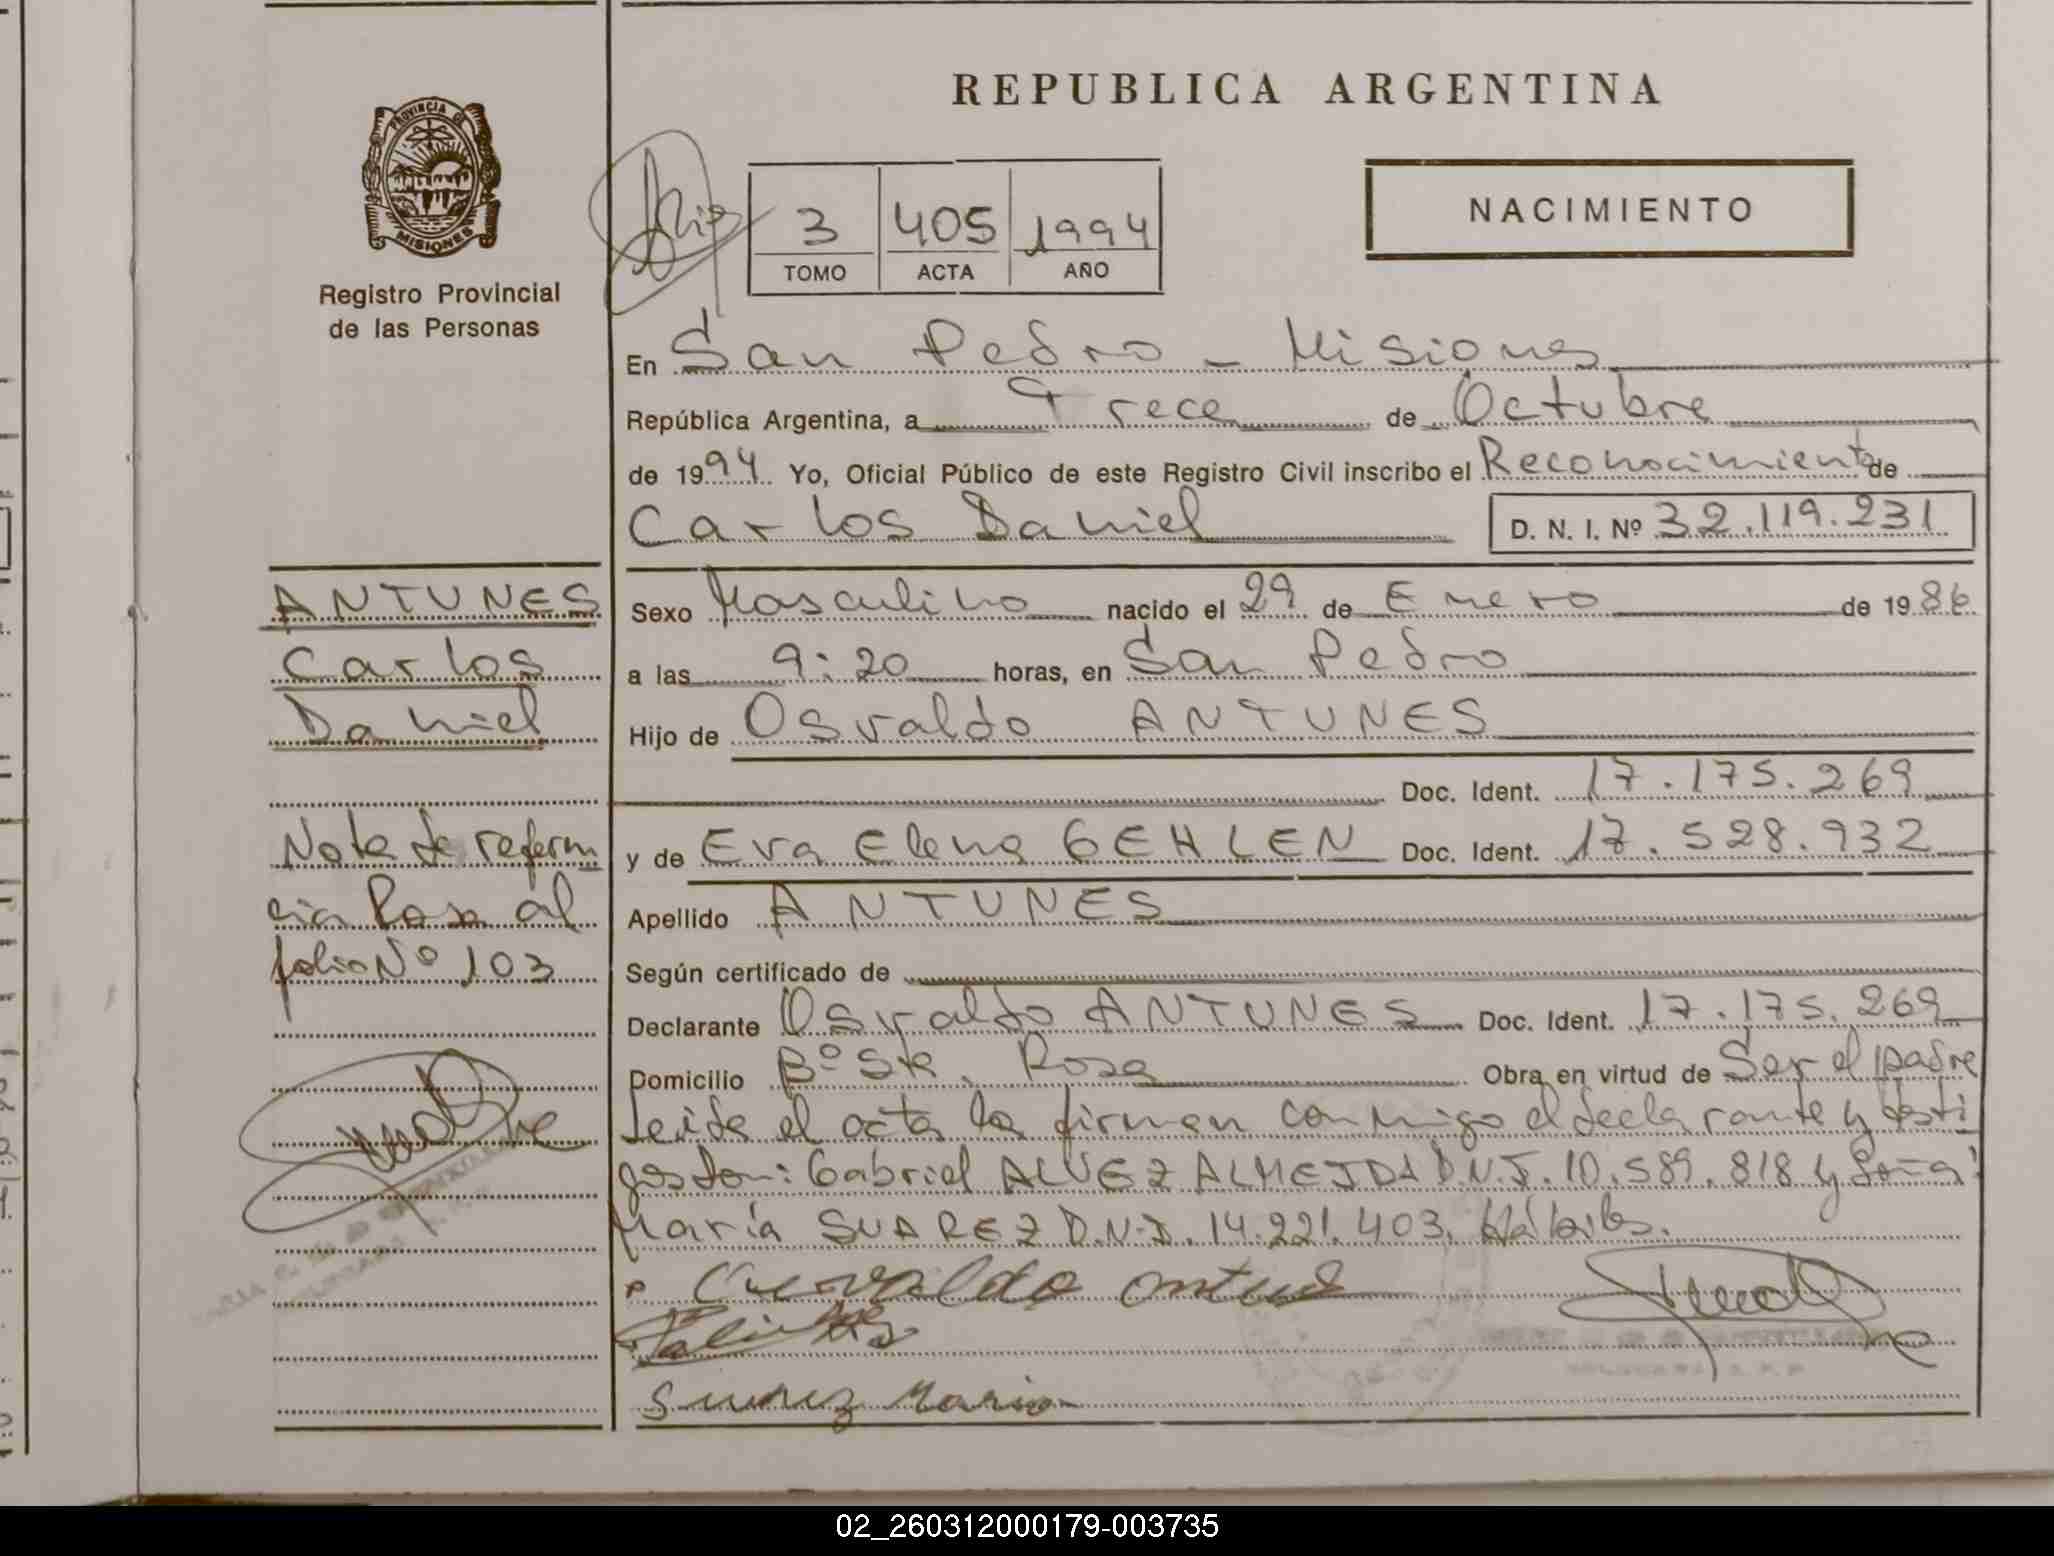 REPUBLICA ARGENTINA
PROVINCIA DE MISIONES
Registro Provincial
de las Personas
3 405 1994
TOMO ACTA AÑO
NACIMIENTO
En San Pedro - Misiones
República Argentina, a Trece de Octubre
de 1994 Yo, Oficial Público de este Registro Civil inscribo el Reconocimiento de
Carlos Daniel D. N. I. Nº 32.119.231
Sexo Masculino nacido el 29 de Enero de 1986
a las 9:20 horas, en San Pedro
Hijo de Osvaldo ANTUNES
Doc. Ident. 17.175.269
y de Eva Elena GEHLEN Doc. Ident. 17.528.932
Apellido ANTUNES
Según certificado de
Declarante Osvaldo ANTUNES Doc. Ident. 17.175.269
Domicilio Bº Sta. Rosa Obra en virtud de Ser el padre
Leida el acta la firman conmigo el declarante y testi
gos Don: Gabriel ALVEZ ALMEIDA D.N.I. 10.589.818 y Doña:
María SUAREZ D.N.I. 14.221.403. Hábiles.
Suarez Maria
ANTUNES
Carlos
Daniel
Nota de referen
cia Pasa al
folio Nº 103
02_260312000179-003735